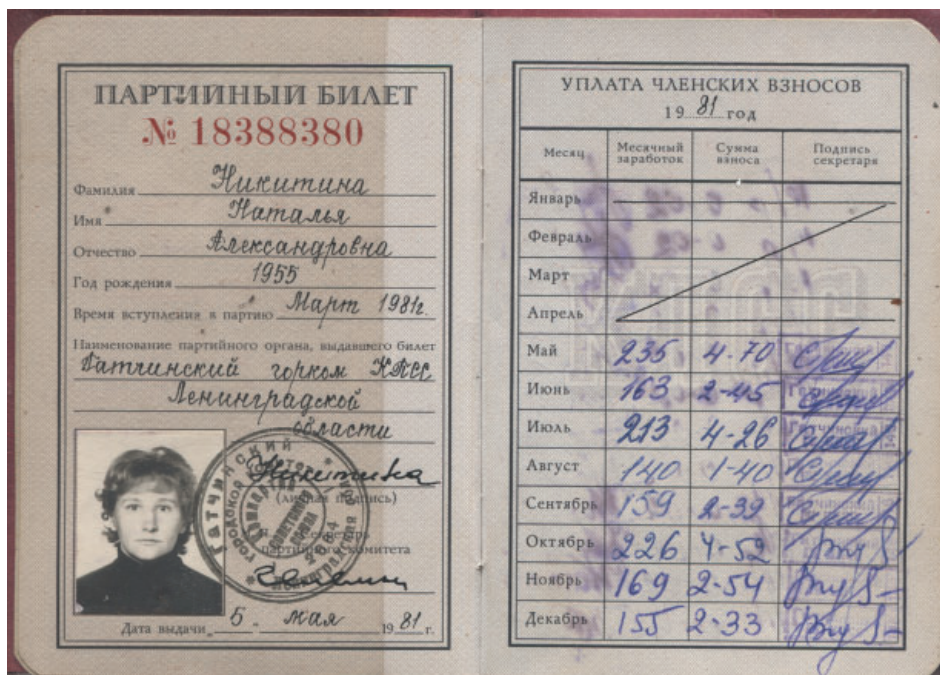 ПАРТИЙНЫЙ БИЛЕТ
№ 18388380
Фамилия Никитина
Имя Наталья
Отчество Александровна
Год рождения 1955
Время вступления в партию Март 1981г.
Наименование партийного органа, выдавшего билет
Гатчинский горком КПСС
Ленинградской
области
Никитина
(личная подпись)
Секретарь
партийного комитета
Дата выдачи 5 мая 1981 г.
УПЛАТА ЧЛЕНСКИХ ВЗНОСОВ
1981 год
Месяц Месячный заработок Сумма взноса Подпись секретаря
Январь
Февраль
Март
Апрель
Май 235 4-70
Июнь 163 2-45
Июль 213 4-26
Август 140 1-40
Сентябрь 159 2-39
Октябрь 226 4-52
Ноябрь 169 2-54
Декабрь 155 2-33